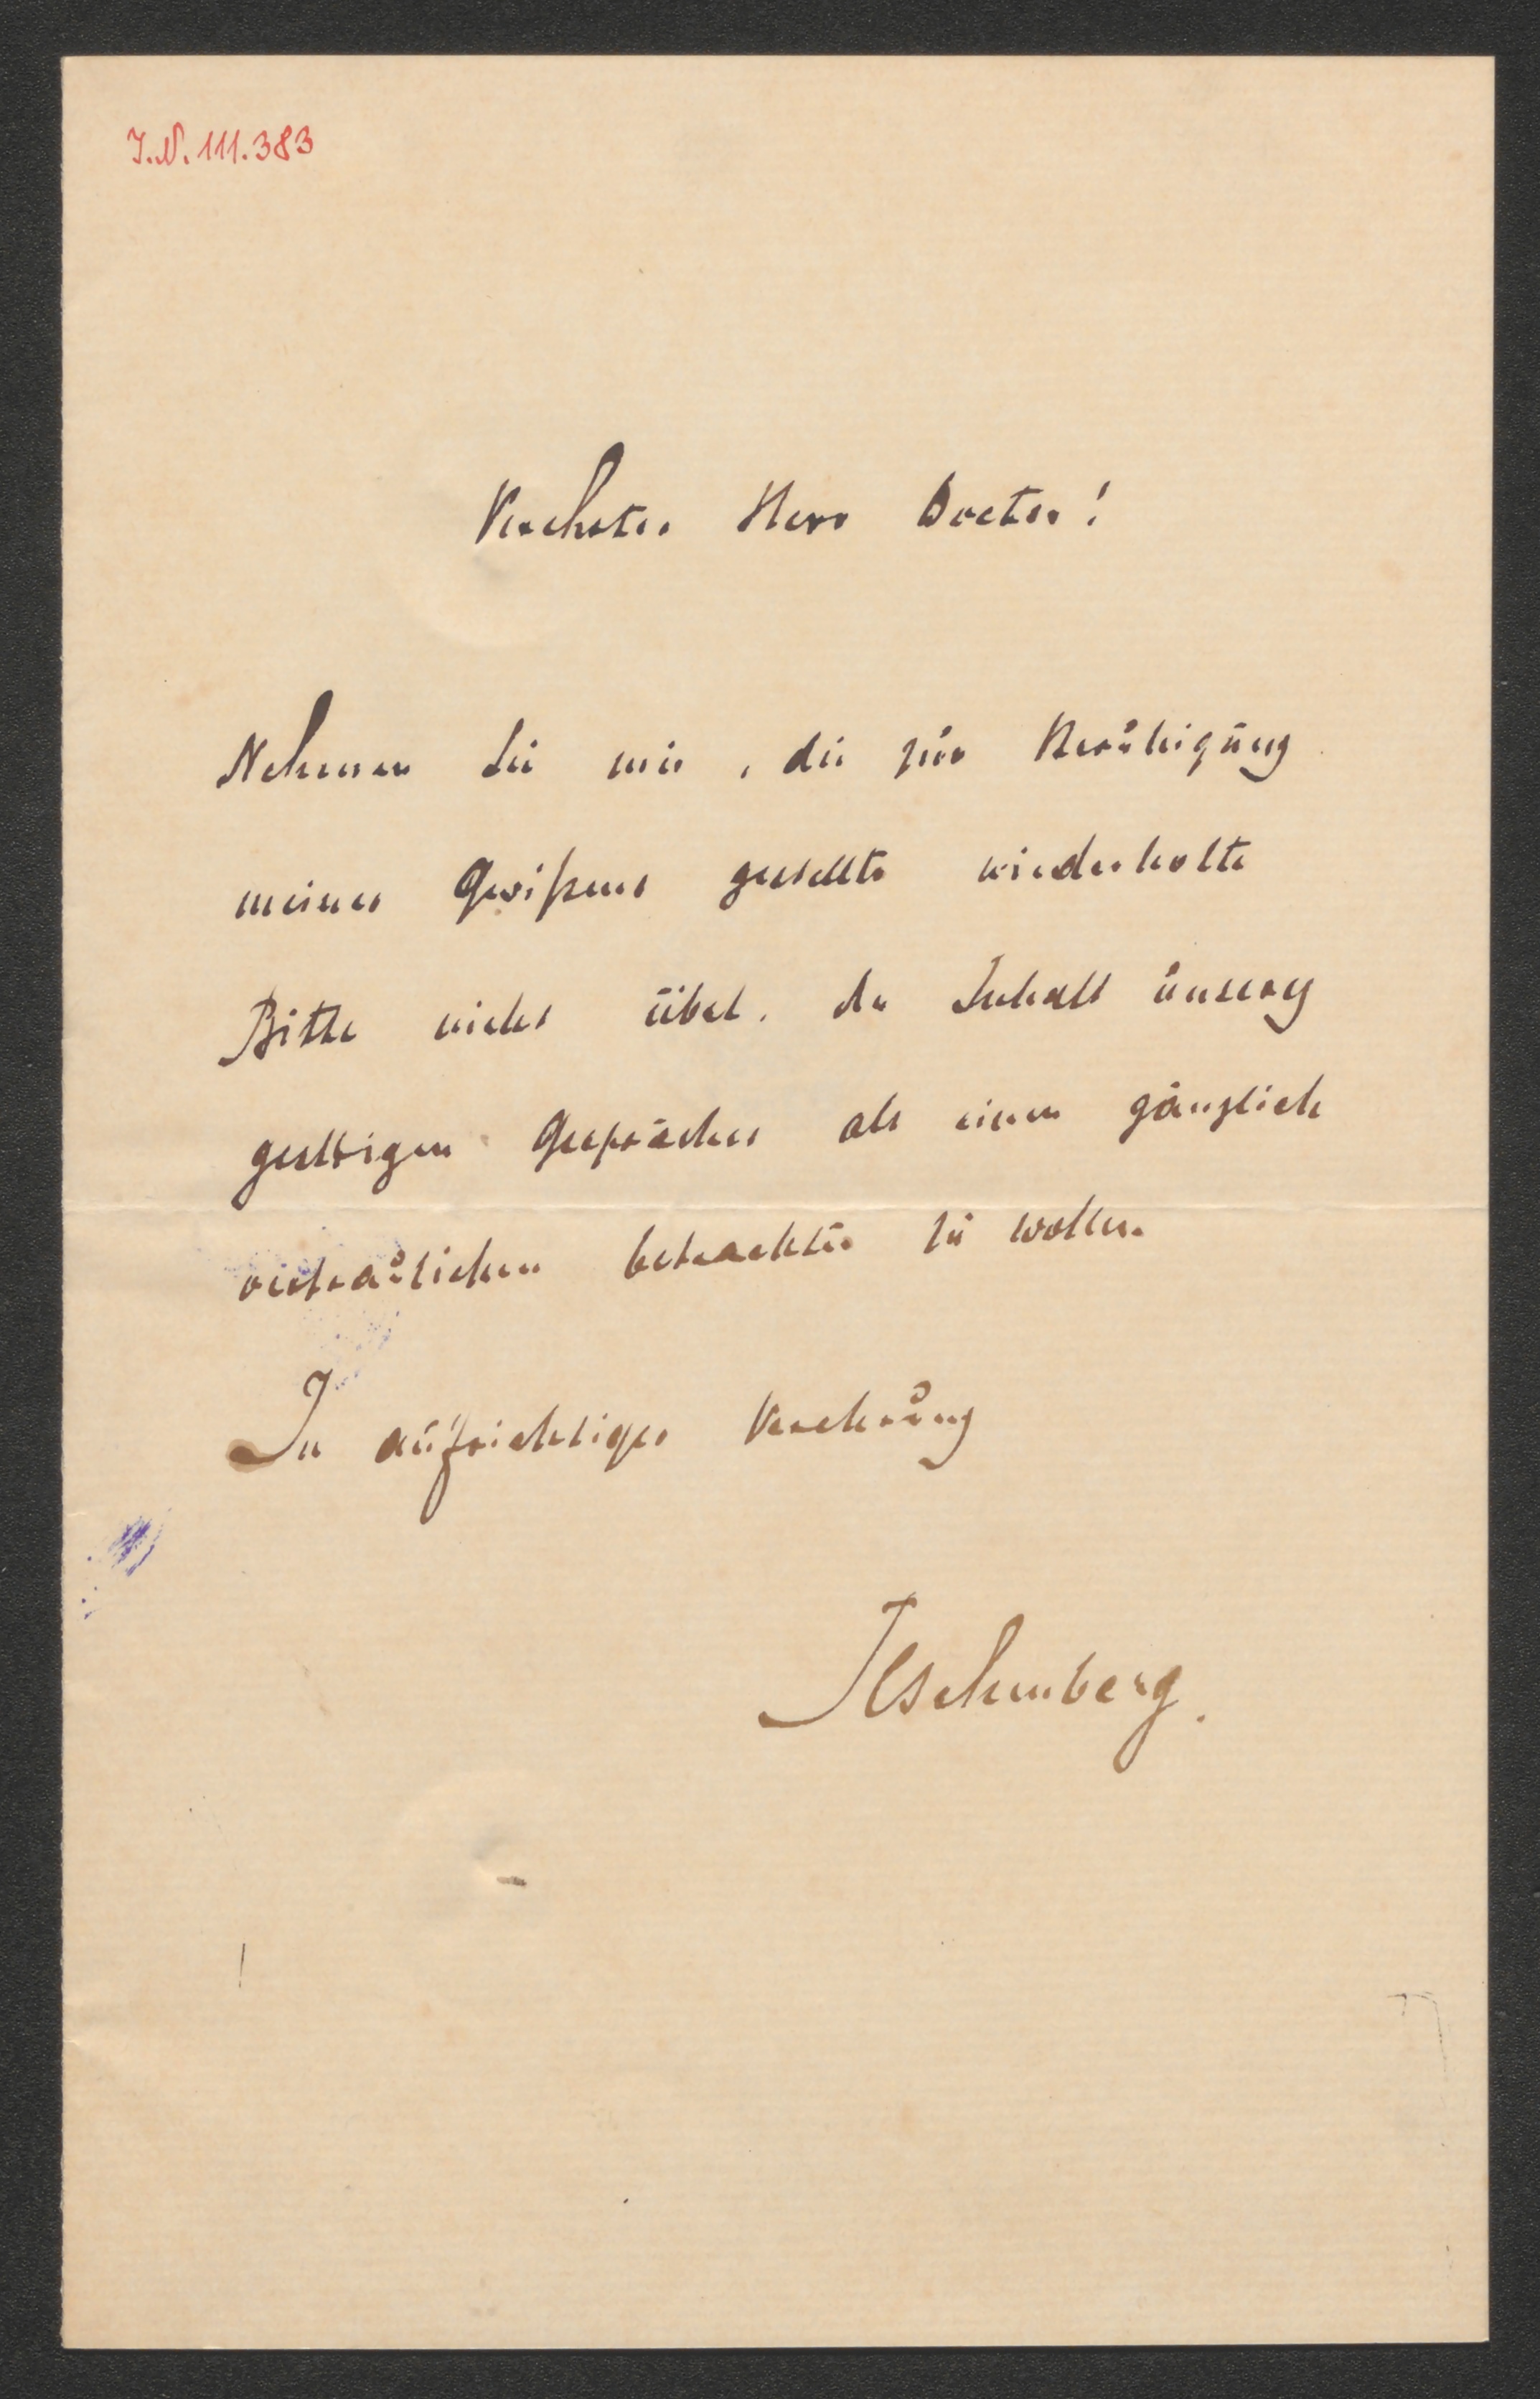 I.N. 111.383
Verehrter Herr Doctor!
Nehmen Sie mir, die zur Beruhigung
meines Gewißens gestellte wiederholte
Bitte nicht übel, den Inhalt unseres
gestrigen Gespräches als einen gänzlich
vertraulichen betrachten zu wollen.
In aufrichtiger Verehrung